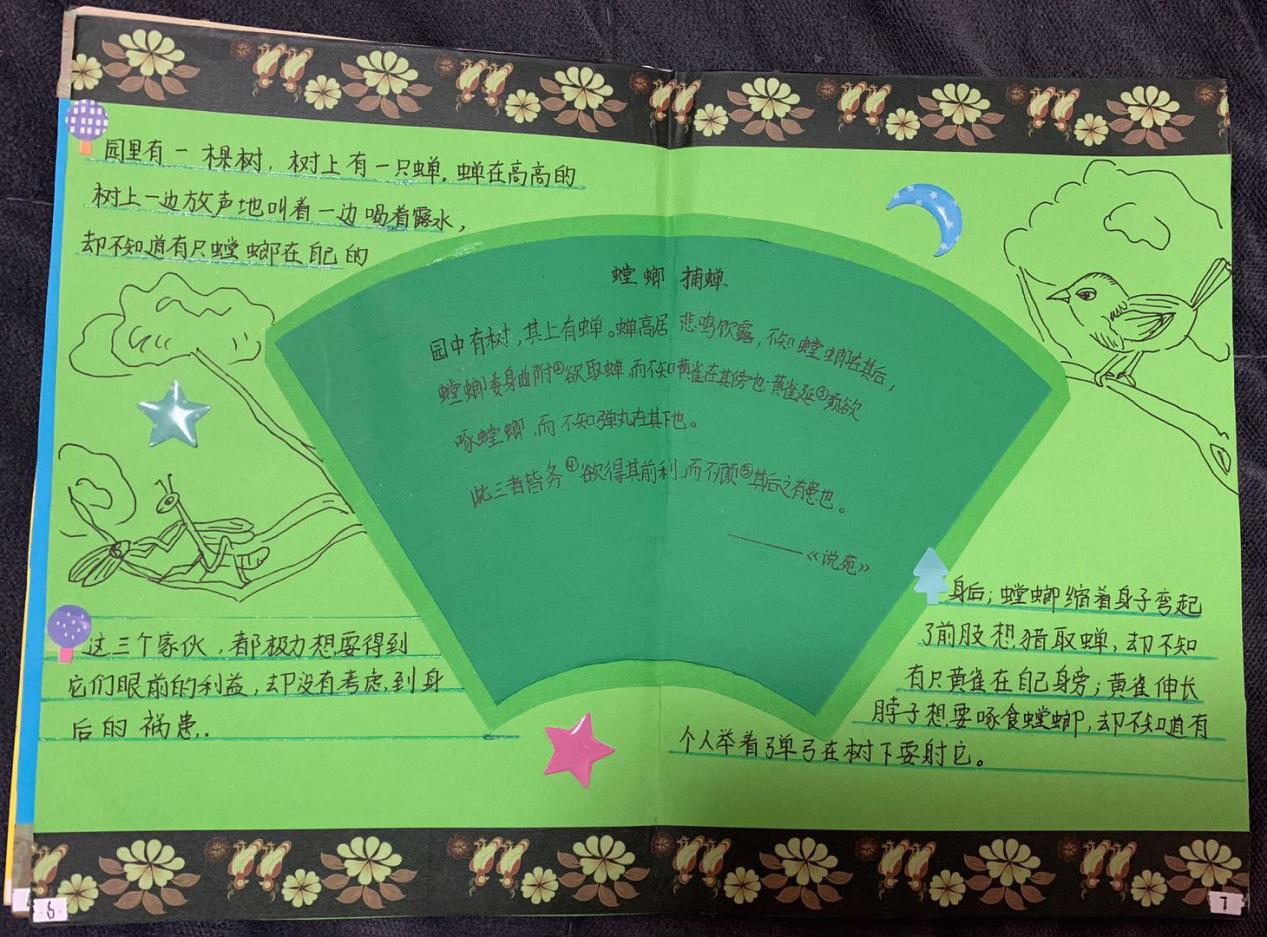 园里有一棵树，树上有一只蝉。蝉在高高的
树上一边放声地叫着一边喝着露水，
却不知道有只螳螂在自己的
螳螂捕蝉
园中有树，其上有蝉。蝉高居悲鸣饮露，不知螳螂在其后，
螳螂委身曲附②欲取蝉，而不知黄雀在其傍也。黄雀延③颈欲
啄螳螂，而不知弹丸在其下也。
此三者皆务④欲得其前利，而不顾⑤其后之有患也。
——《说苑》
身后；螳螂缩着身子弯起
了前肢想猎取蝉，却不知
有只黄雀在自己身旁；黄雀伸长
脖子想要啄食螳螂，却不知道有
个人举着弹弓在树下要射它。
这三个家伙，都极力想要得到
它们眼前的利益，却没有考虑到身
后的祸患。
6
7